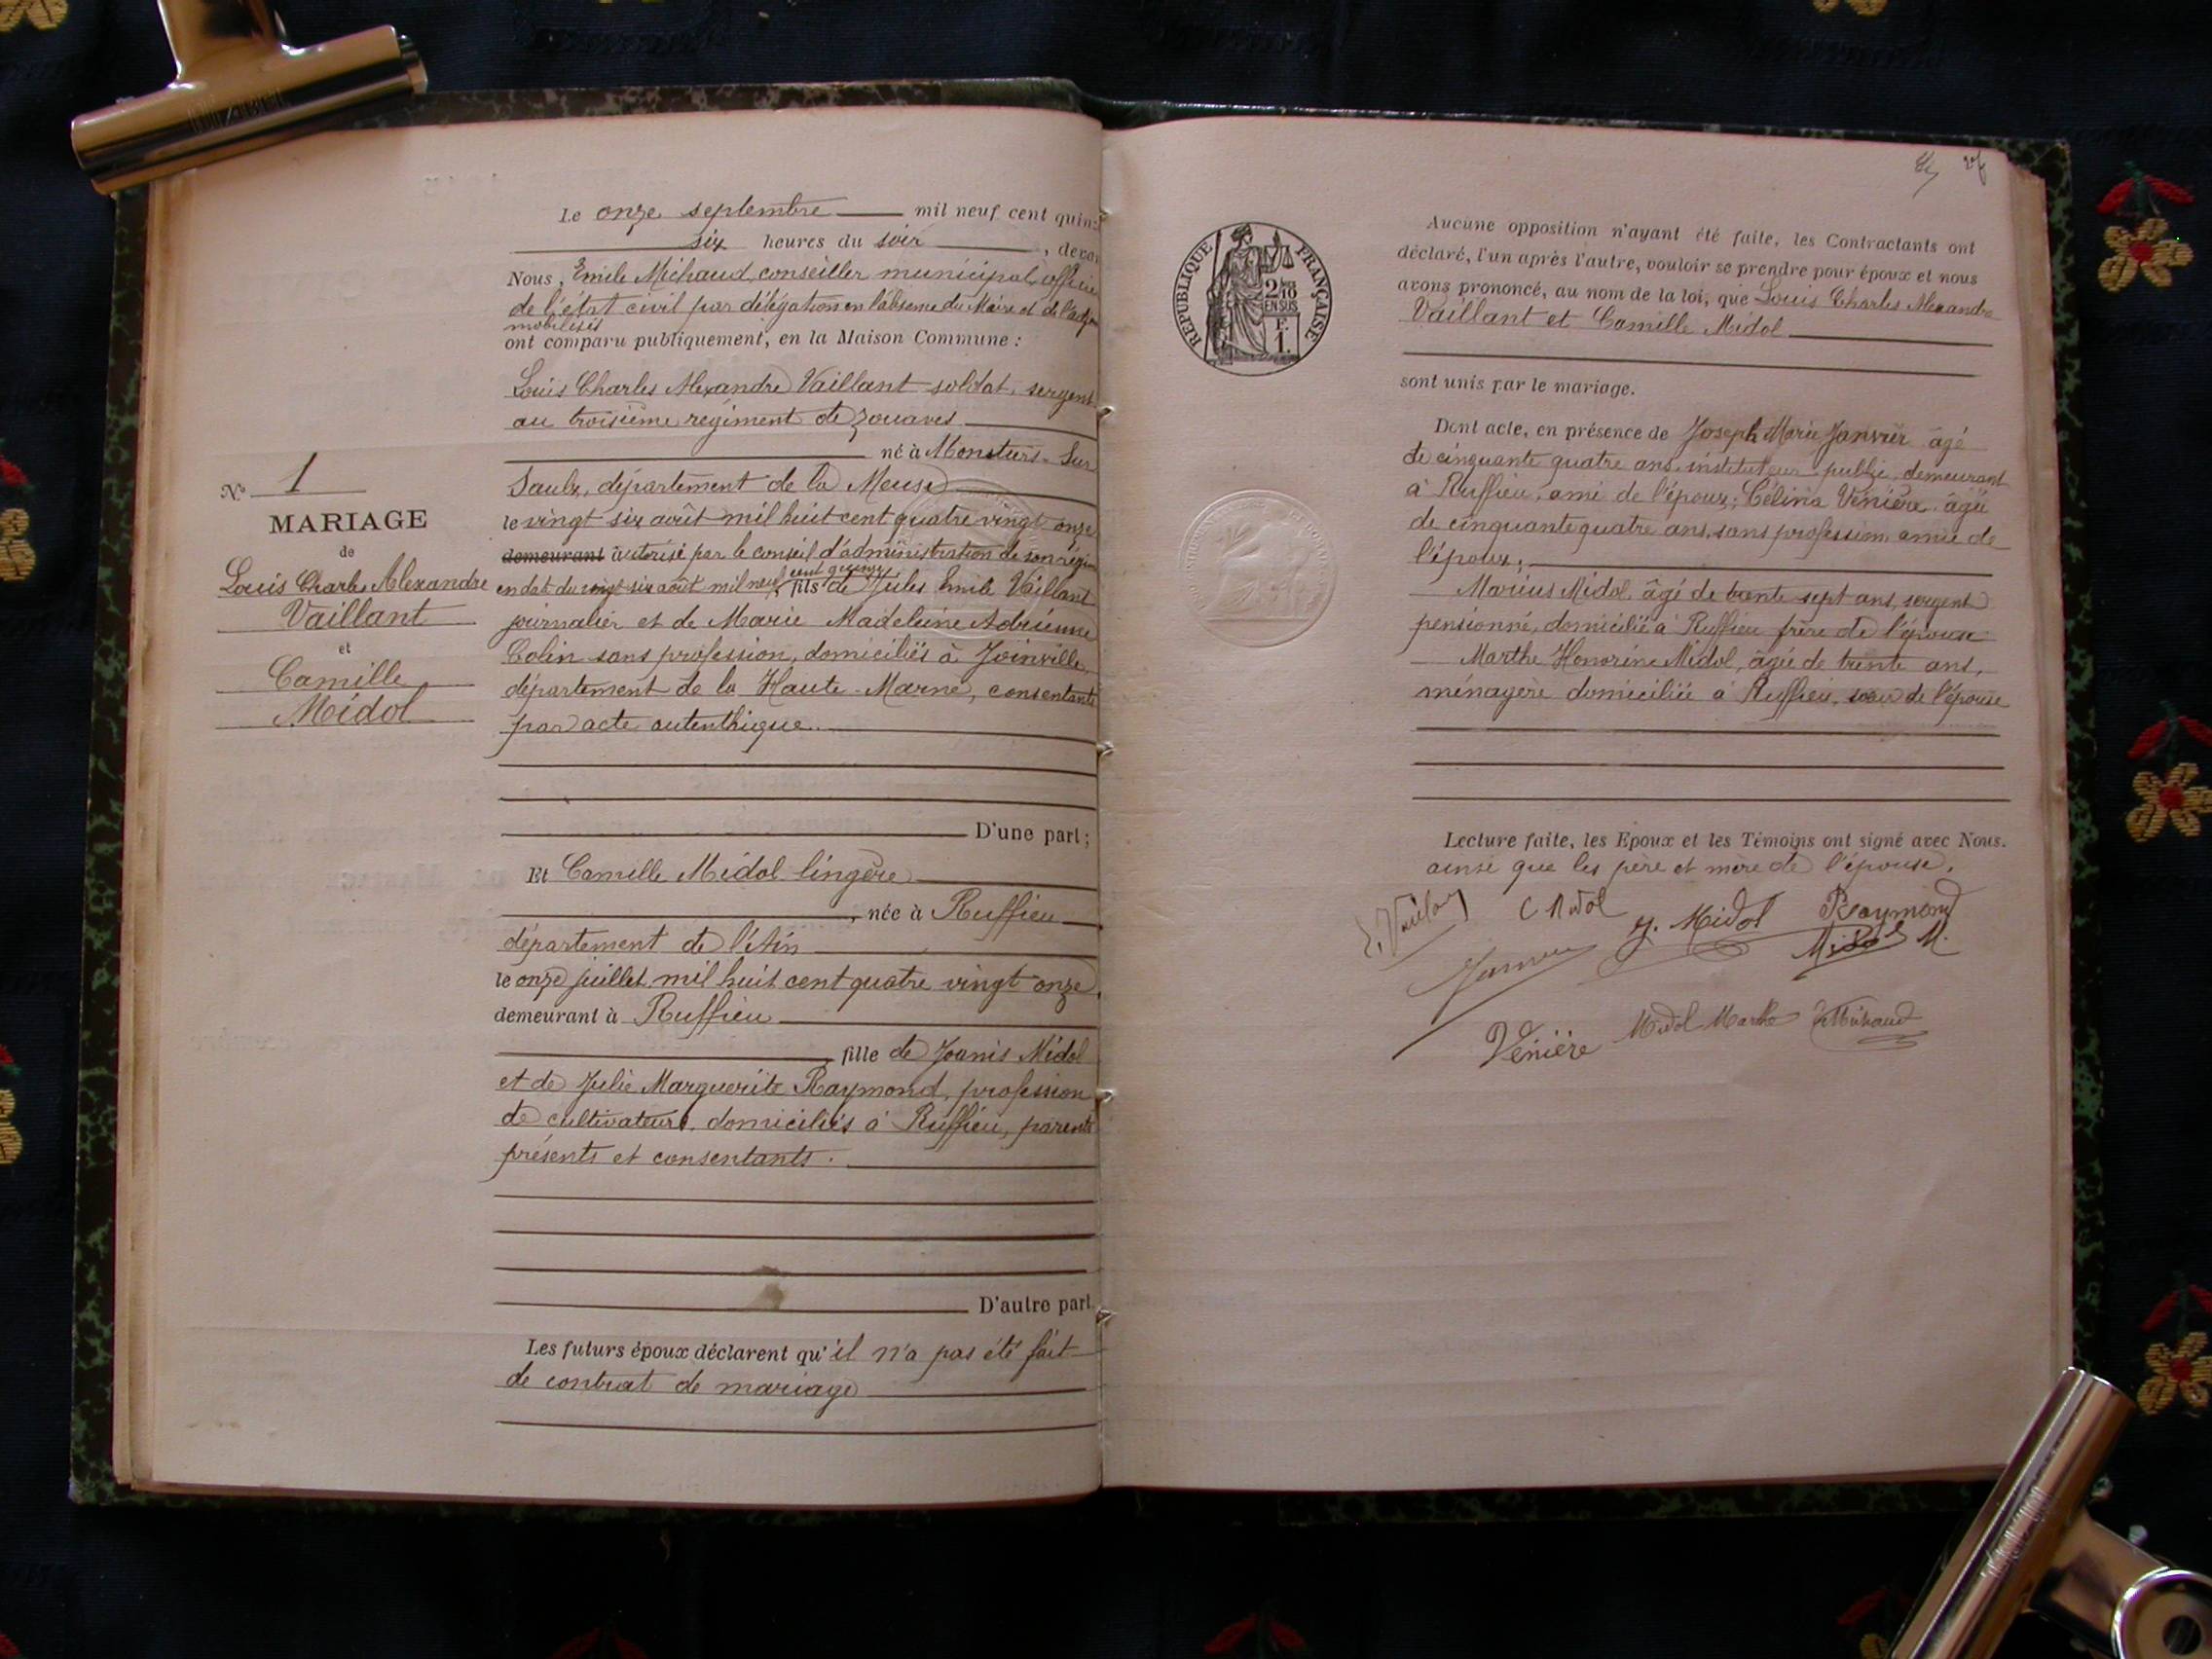 Le onze septembre mil neuf cent quin
six heures du soir, deva
Nous, Emile Michaud, conseiller municipal, officier
de l'état civil par délégation en l'absence du Maire et de l'adj
mobilisés
ont comparu publiquement, en la Maison Commune :
Louis Charles Alexandre Vaillant soldat, sergent
au troisième régiment de zouaves
né à Monstiers-Sur
Saulx, département de la Meuse
le vingt six août mil huit cent quatre vingt onze
demeurant autorisé par le conseil d'administration de son régi
en date du vingt six août mil neuf cent quinze, fils de Jules Emile Vaillant
journalier et de Marie Madeleine Adrienne
Colin sans profession, domiciliés à Joinville,
département de la Haute-Marne, consentants
par acte autenthique.
D'une part ;
Et Camille Midol lingère
, née à Ruffieu
département de l'Ain
le onze juillet mil huit cent quatre vingt onze,
demeurant à Ruffieu
, fille de Joanis Midol
et de Julie Marguerite Raymond, profession
de cultivateurs, domiciliés à Ruffieu, parents
présents et consentants.
D'autre part.
Les futurs époux déclarent qu'il n'a pas été fait
de contrat de mariage
N° 1
MARIAGE
de
Louis Charles Alexandre
Vaillant
et
Camille
Midol
27
RÉPUBLIQUE FRANÇAISE
2/10
EN SUS
F.
1.
Aucune opposition n'ayant été faite, les Contractants ont
déclaré, l'un après l'autre, vouloir se prendre pour époux et nous
avons prononcé, au nom de la loi, que Louis Charles Alexandre
Vaillant et Camille Midol
sont unis par le mariage.
Dont acte, en présence de Joseph Marie Janvier âgé
de cinquante quatre ans, instituteur public, demeurant
à Ruffieu, ami de l'époux ; Célina Venière, âgée
de cinquante quatre ans, sans profession, amie de
l'époux ;
Marius Midol, âgé de trente sept ans, sergent
pensionné, domicilié à Ruffieu frère de l'épouse
Marthe Honorine Midol, âgée de trente ans,
ménagère domiciliée à Ruffieu, sœur de l'épouse
Lecture faite, les Epoux et les Témoins ont signé avec Nous.
ainsi que les père et mère de l'épouse.
L. Vaillant C Midol J. Midol Raymond
Janvier Midol M.
Venière Midol Marthe E Michaud